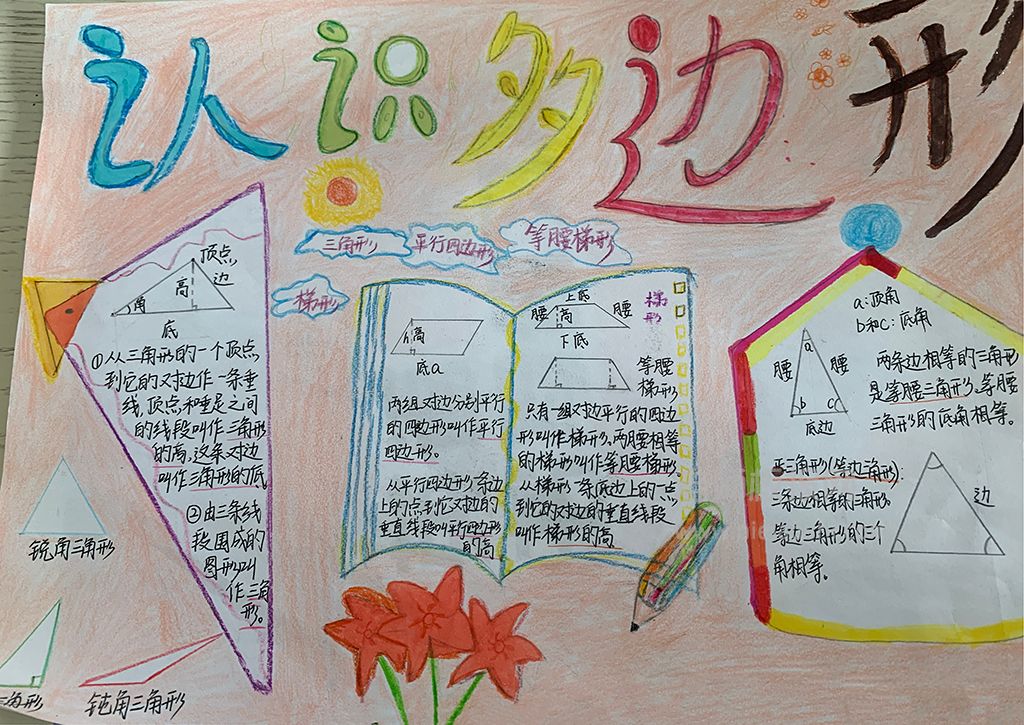 认识多边形
三角形
平行四边形
等腰梯形
梯形
顶点
角
高
边
底
①从三角形的一个顶点
到它的对边作一条垂
线,顶点和垂足之间
的线段叫作三角形
的高,这条对边
叫作三角形的底
②由三条线
段围成的
图形叫
作三角
形。
锐角三角形
三角形
钝角三角形
高
底a
两组对边分别平行
的四边形叫作平行
四边形。
从平行四边形一条边
上的一点到它对边的
垂直线段叫平行四边形
的高
上底
腰
高
腰
下底
梯形
等腰
梯形
只有一组对边平行的四边
形叫作梯形。两腰相等
的梯形叫作等腰梯形。
从梯形一条底边上的一点
到它的对边的垂直线段
叫作梯形的高
a:顶角
b和c:底角
a
腰
腰
b
c
底边
两条边相等的三角形
是等腰三角形。等腰
三角形的底角相等。
正三角形(等边角形):
三条边相等的三角形。
等边三角形的三个
角相等。
边